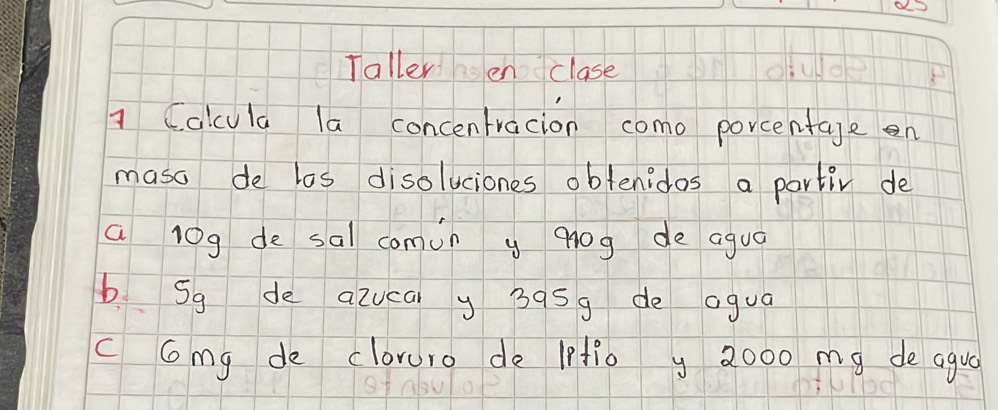 Taller en clase
1 Calcula la concentracion como porcentaje en
masa de las disoluciones obtenidos a partir de
a 10g de sal común y 990g de agua
b. 5g de azucar y 395g de agua
c 6mg de cloruro de litio y 2000 mg de agua